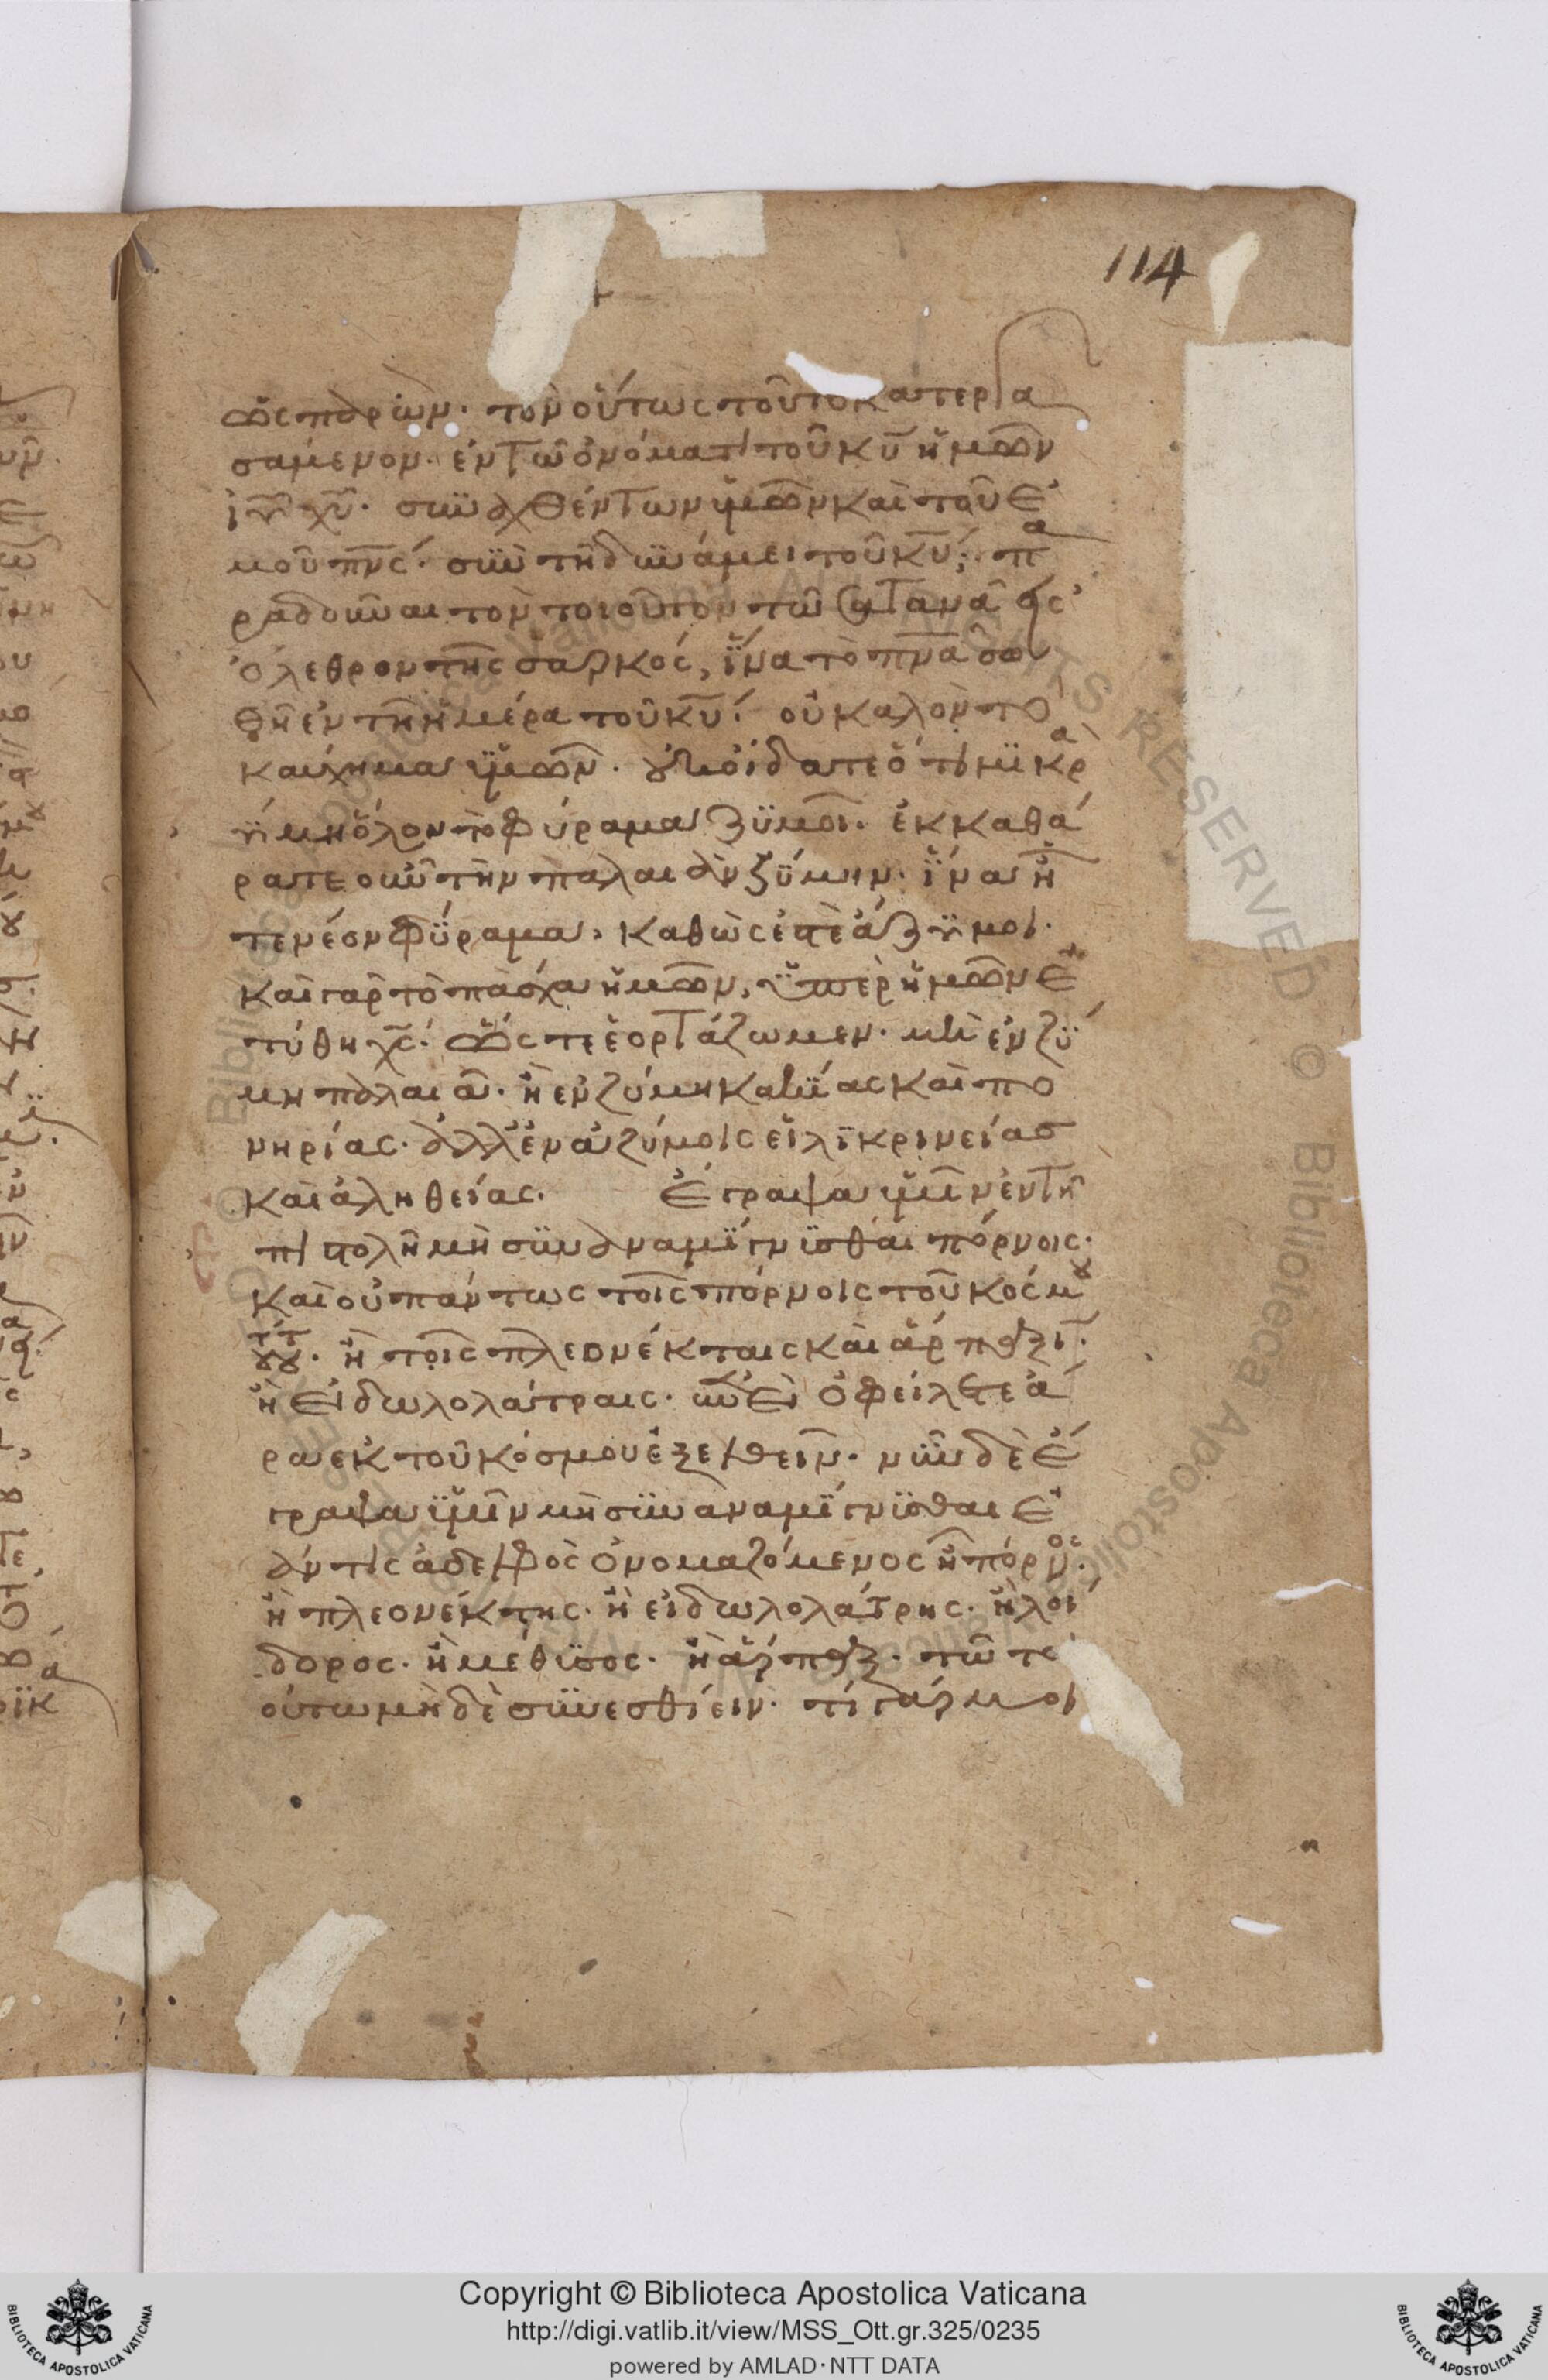 114
ὡς παρὼν. τὸν οὕτως τοῦτο κατεργα
σάμενον. ἐν τῶ ὀνόματι τοῦ κ̅υ̅ ἡμῶν
ἰ̅υ̅ χ̅υ̅. συναχθέντων ὑμῶν καὶ τοῦ ἐ
μοῦ π̅ν̅ς̅. σὺν τῆ δυνάμει τοῦ κ̅υ̅. πα
ραδοῦναι τὸν τοιοῦτον τῶ σατανᾶ εἰς
ὄλεθρον τῆς σαρκός, ἵνα τὸ π̅ν̅α̅ σω
θῆ ἐν τῆ ἡμέρα τοῦ κ̅υ̅. οὐ καλὸν τὸ
καύχημα ὑμῶν. οὐκ οἴδατε ὅτι μικρὰ
ζύμη ὅλον τὸ φύραμα ζυμοῖ. ἐκκαθά
ρατε οὖν τὴν παλαιὰν ζύμην. ἵνα ἦ
τε νέον φύραμα, καθὼς ἐστὲ ἄζυμοι.
καὶ γὰρ τὸ πάσχα ἡμῶν, ὑπὲρ ἡμῶν ἐ
τύθη χ̅ς̅. ὥστε ἑορτάζωμεν. μὴ ἐν ζύ
μη παλαιᾶ. ἢ ἐν ζύμη κακίας καὶ πο
νηρίας. ἀλλ' ἐν ἀζύμοις εἰλικρινείας
καὶ ἀληθείας. Ἔγραψα ὑμῖν ἐν τῆ
ἐπιστολῆ μὴ συναναμίγνυσθαι πόρνοις.
καὶ οὐ πάντως τοῖς πόρνοις τοῦ κόσμου
τούτου. ἢ τοῖς πλεονέκταις καὶ ἅρπαξι.
ἢ εἰδωλολάτραις. ἐπεὶ ὀφείλετε ἄ
ρα ἐκ τοῦ κόσμου ἐξελθεῖν. νῦν δὲ ἔ
γραψα ὑμῖν μὴ συναναμίγνυσθαι ἐ
άν τις ἀδελφὸς ὀνομαζόμενος ἢ πόρνος.
ἢ πλεονέκτης. ἢ εἰδωλολάτρης. ἢ λοί
δορος. ἢ μέθυσος. ἢ ἅρπαξ. τῶ τοι
ούτω μὴ δὲ συνεσθίειν. τί γάρ μοι
Copyright © Biblioteca Apostolica Vaticana
http://digi.vatlib.it/view/MSS_Ott.gr.325/0235
powered by AMLAD·NTT DATA
BIBLIOTECA APOSTOLICA VATICANA
BIBLIOTECA APOSTOLICA VATICANA